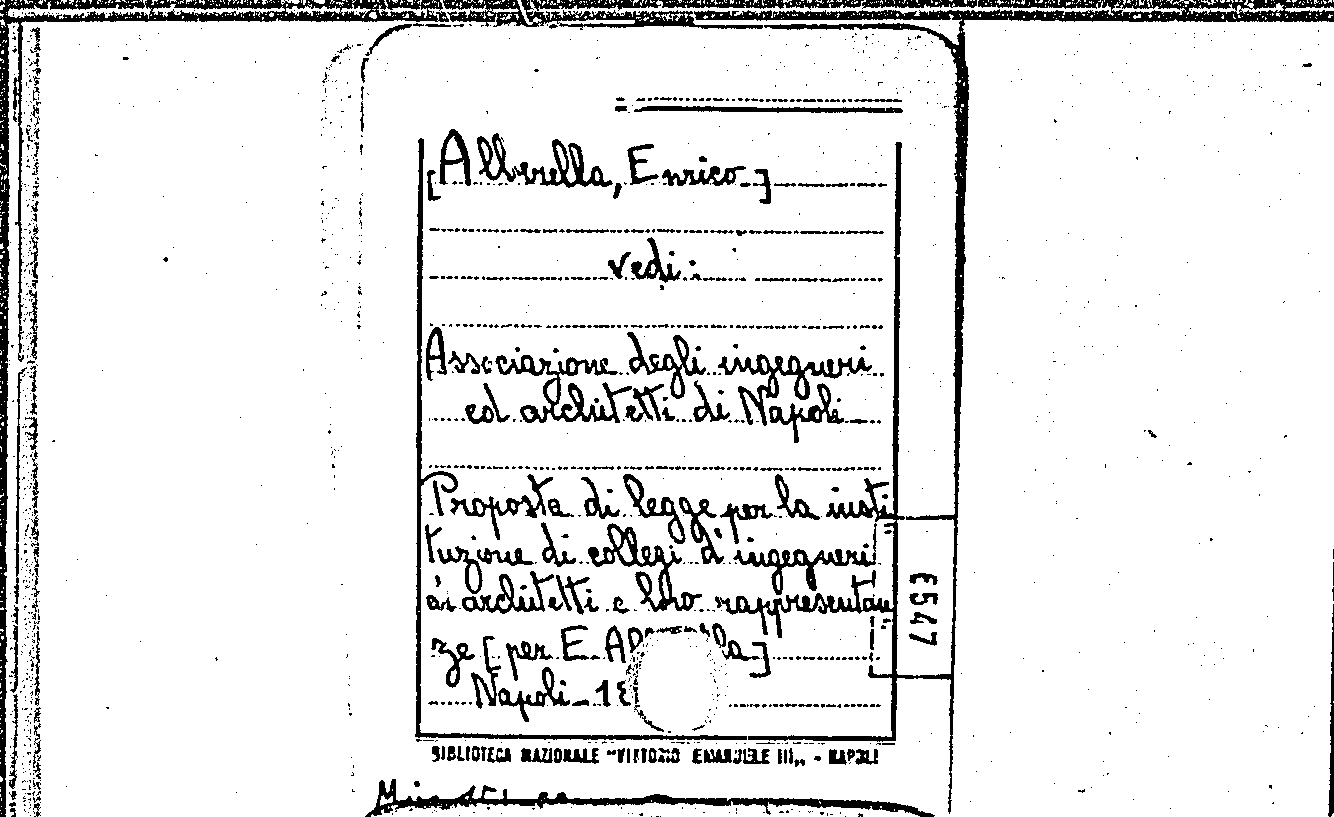 [Alberella, Enrico]
vedi:
Associazione degli ingegneri
ed architetti di Napoli
Proposta di legge per la insti
tuzione di collegi d'ingegneri
ai architetti e loro rappresentan
ze [per E.
Napoli
E547
BIBLIOTECA NAZIONALE "VITTORIO EMANUELE III„ - NAPOLI